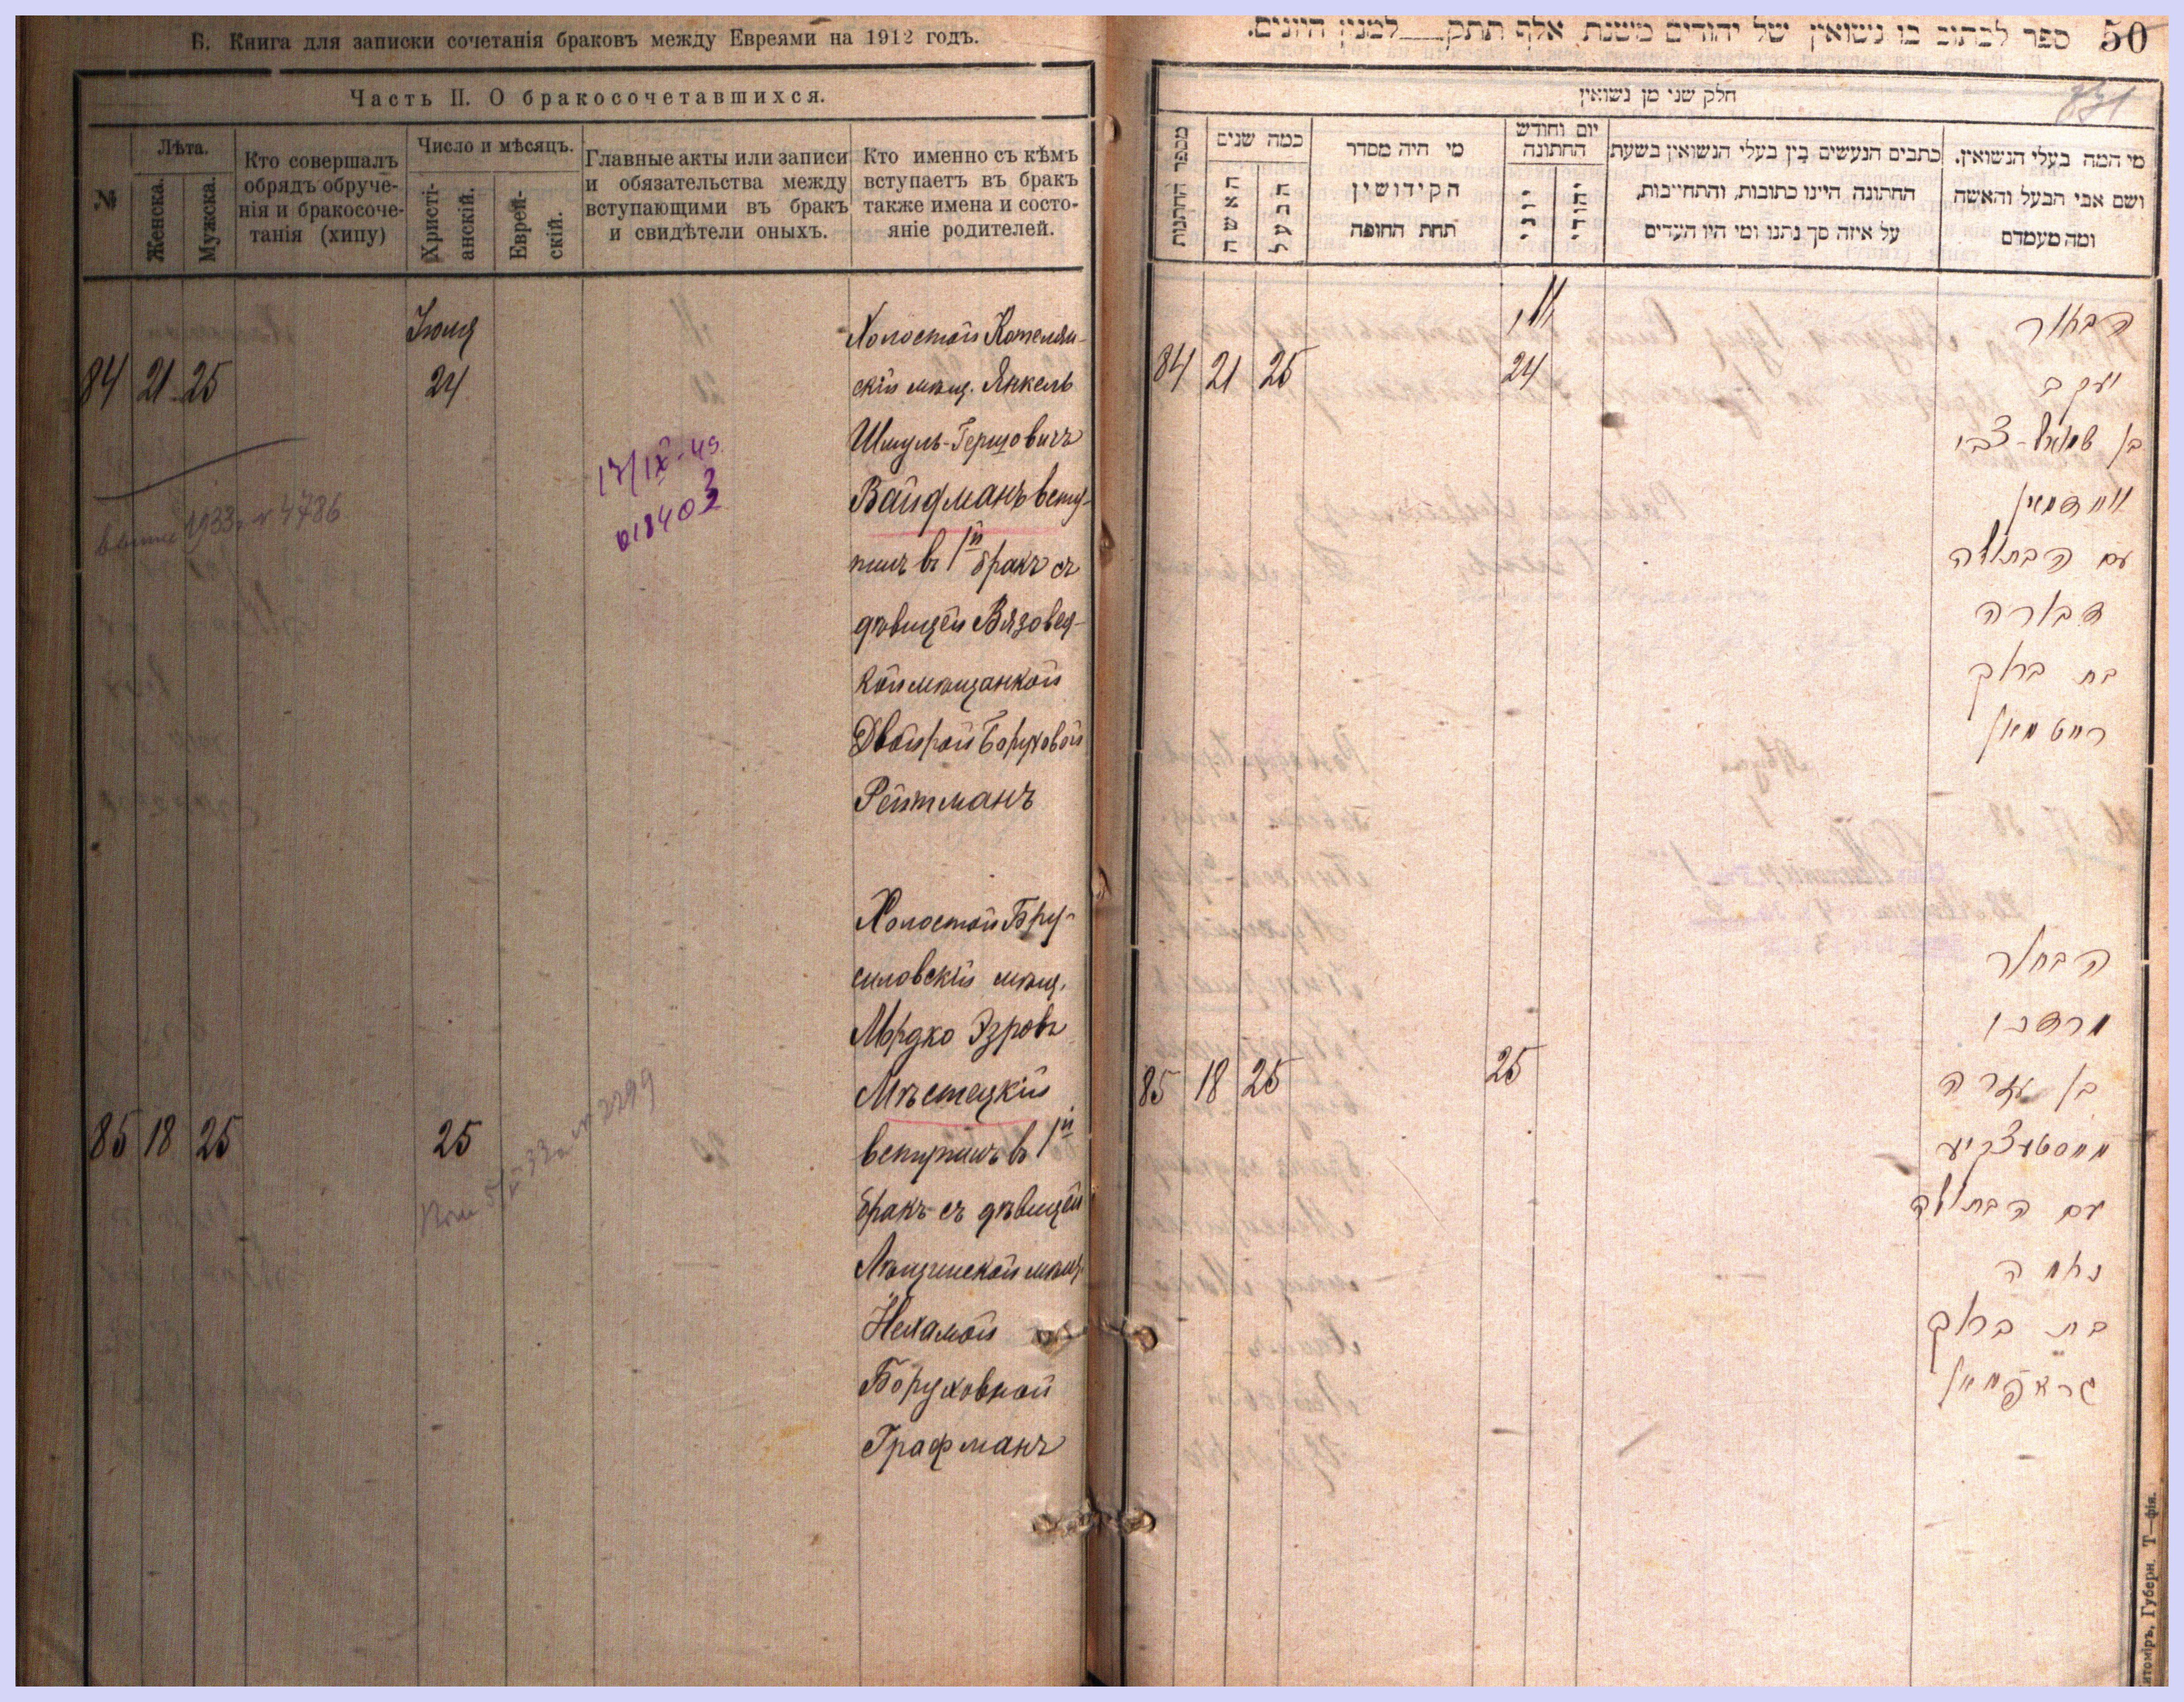 Б. Книга для записки сочетанія браковъ между Евреями на 1912 годъ.
Часть II. О бракосочетавшихся.
№
Лѣта.
Женска.
Мужска.
Кто совершалъ
обрядъ обруче-
нія и бракосоче-
танія (хипу)
Число и мѣсяцъ.
Христі-
анскій.
Еврей-
скій.
Главные акты или записи
и обязательства между
вступающими въ бракъ
и свидѣтели оныхъ.
Кто именно съ кѣмъ
вступаетъ въ бракъ
также имена и состо-
яніе родителей.
84 21 25
24
Холостой Котелян-
скій мѣщ. Янкель
Шмуль-Гершовичъ
Вайдманъ всту-
пилъ въ 1й бракъ съ
дѣвицей Вязовец-
кой мѣщанкой
Двойрой Боруховой
Рейтманъ
17/IX-49
1933 г. № 4786
85 18 25
25
Холостой Бру-
силовскій мѣщ.
Мордко Эзровъ
Мѣстецкій
вступилъ въ 1й
бракъ съ дѣвицей
Лѣщинской мѣщ.
Нехамой
Боруховной
Графманъ
№ 2299
ספר לכתוב בו נשואין של יהודים משנת אלף תתק למנין היונים.
50
חלק שני מן נשואין
מספר החתונות
כמה שנים
האשה
הבעל
מי היה מסדר
הקידושין
תחת החופה
יום וחודש
החתונה
יוני
יהודי
כתבים הנעשים בין בעלי הנשואין בשעת
החתונה היינו כתובות, והתחייבות,
על איזה סך נתנו ומי היו העדים
מי המה בעלי הנשואין.
ושם אבי הבעל והאשה
ומה מעמדם
84 21 25
24
הבחור
יעקב
בן שמואל-צבי
וויידמאן
עם הבתולה
דבורה
בת ברוך
רייטמאן
85 18 25
25
הבחור
מרדכי
בן עזרה
מיסטעצקיי
עם הבתולה
נחמה
בת ברוך
גראפמאן
итоміръ, Губерн. Т—фія.